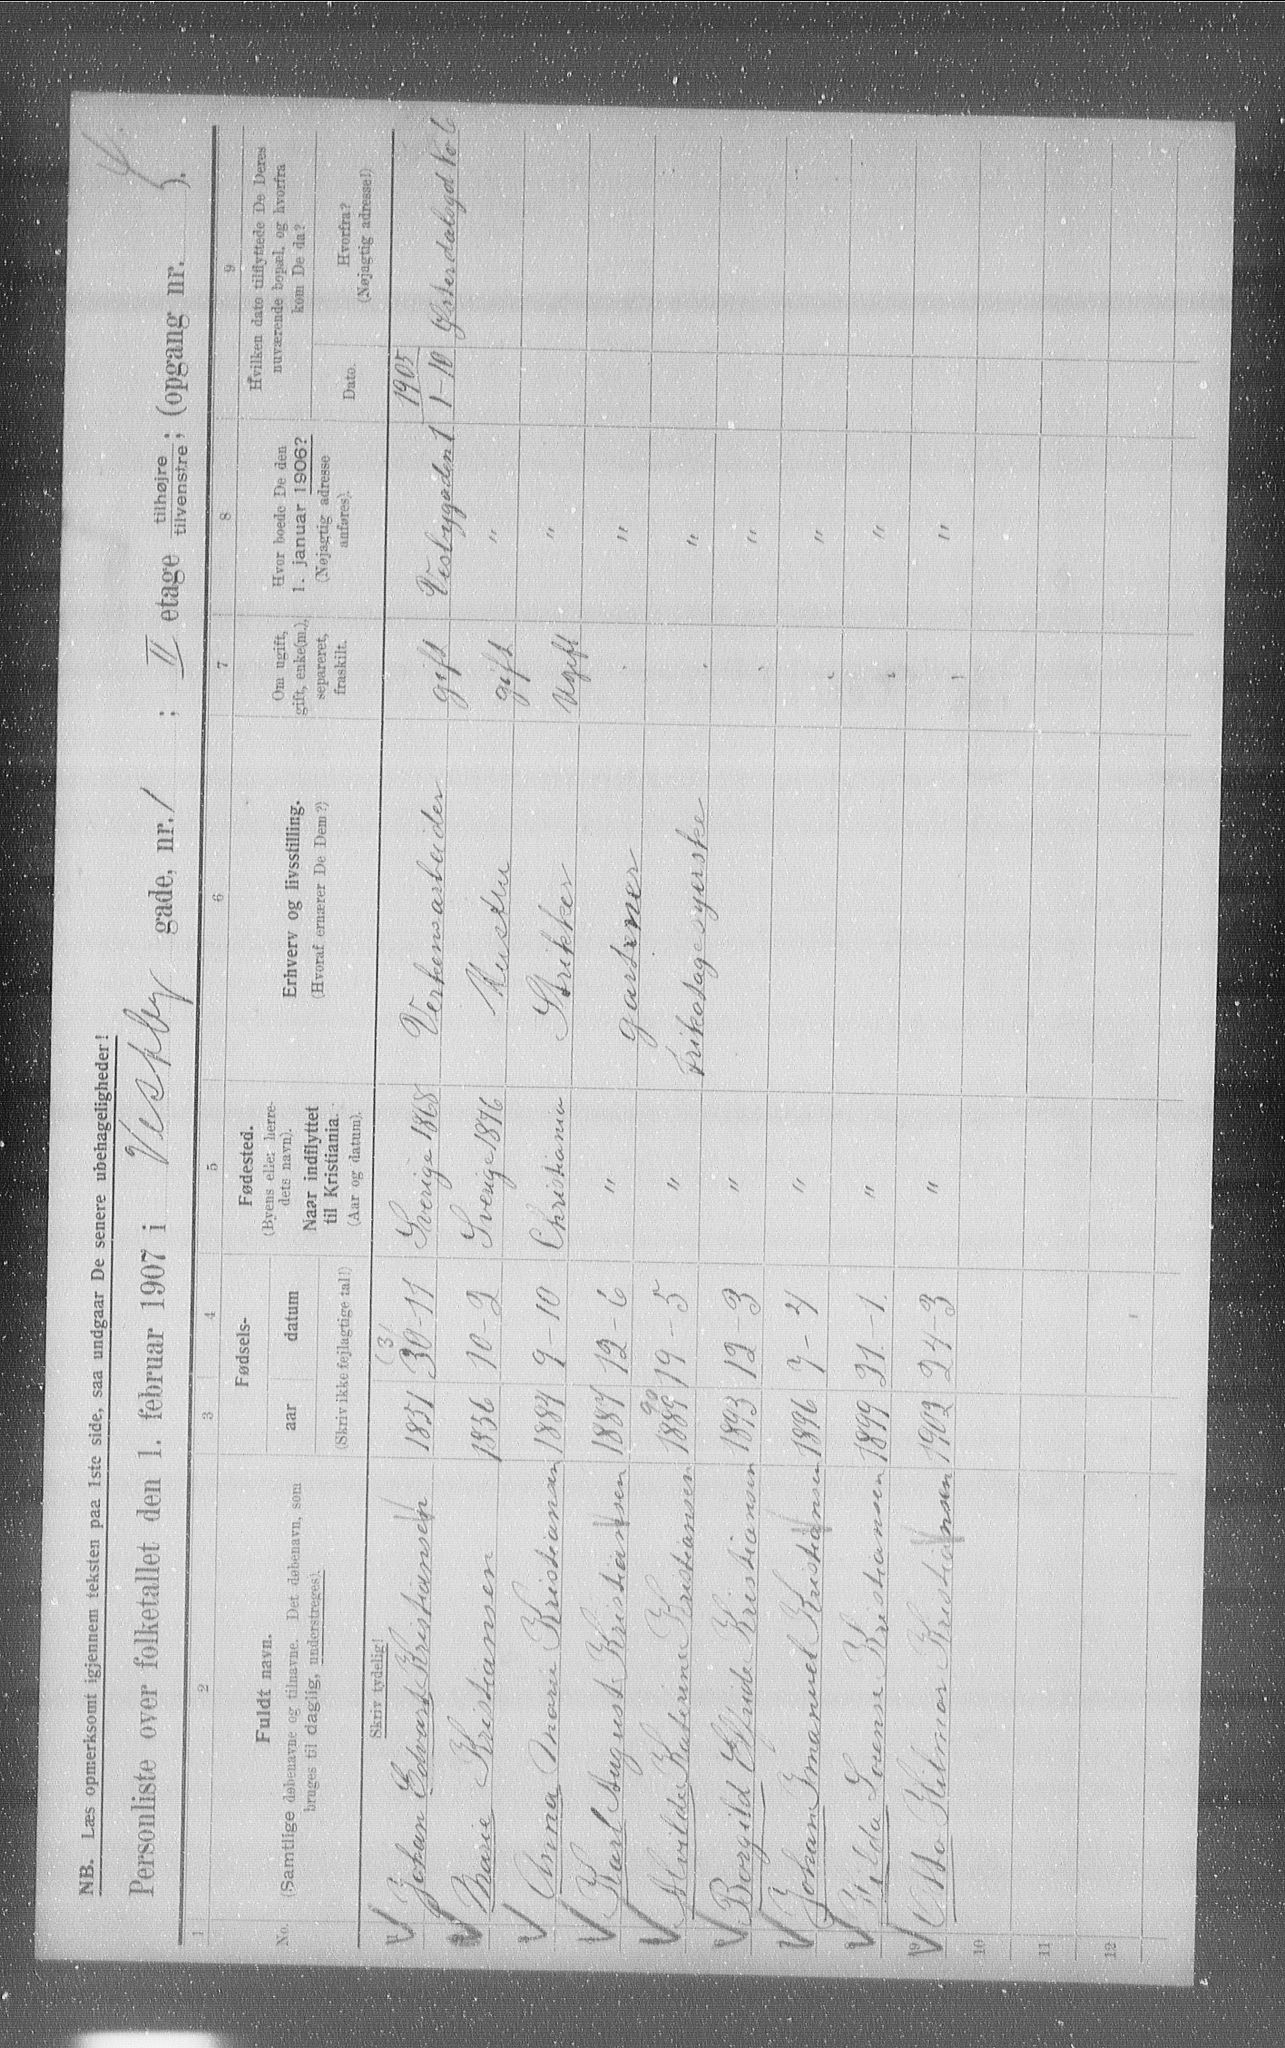 NB. Læs opmerksomt igjennem teksten paa 1ste side, saa undgaar De senere ubehageligheder!
Personliste over folketallet den 1. februar 1907 i Vestby gade, nr. 1 ; II etage tilhøjre tilvenstre; (opgang nr. ).
1 2 3 4 5 6 7 8 9
No. Fuldt navn. (Samtlige døbenavne og tilnavne. Det døbenavn, som bruges til daglig, understreges).
Fødsels- aar datum
(Skriv ikke fejlagtige tal!)
Fødested. (Byens eller herredets navn). Naar indflyttet til Kristiania. (Aar og datum).
Erhverv og livsstilling. (Hvoraf ernærer De Dem?)
Om ugift, gift, enke(m.), separeret, fraskilt.
Hvor boede De den 1. januar 1906? (Nøjagtig adresse anføres).
Hvilken dato tilflyttede De Deres nuværende bopæl, og hvorfra kom De da?
Dato. Hvorfra? (Nøjagtig adresse!)
Skriv tydelig!
Johan Edvart Kristiansen 1851 30-11 Sverige 1868 Verkensarbeider gift Vestbygaden 1 1905 1-10 Østerdalsgd No 6
Marie Kristiansen 1856 10-2 Sverige 1876 Hustru gift "
Anna Marie Kristiansen 1884 9-10 Christiania Strikker Ugift "
Karl August Kristiansen 1887 12-6 " gartner "
Alvilde Katrine Kristiansen 1889 90 19-5 " Trikotagesyerske "
Borgild Elfride Kristiansen 1893 12-3 " "
Johan Imanuel Kristiansen 1896 7-4 " "
Hilda Lovense Kristiansen 1899 21-1. " "
9 Otto Hilmar Kristiansen 1902 24-3 " "
10
11
12